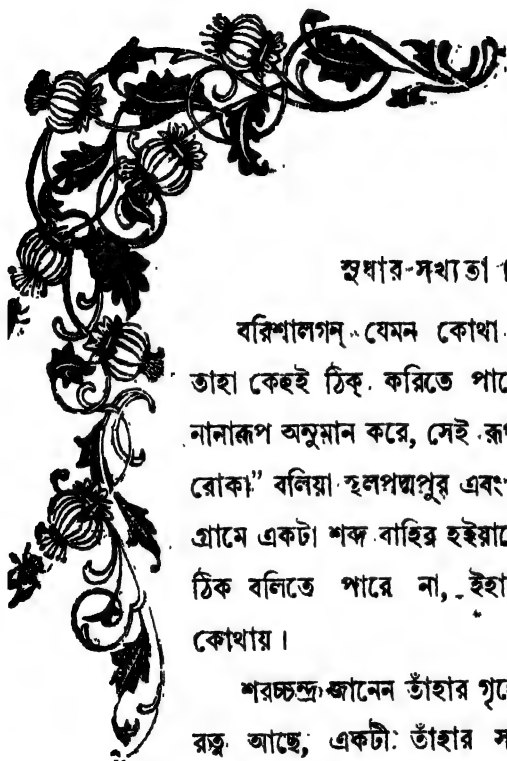 সুধার-সখ্যতা।
বরিশালগন্ যেমন কোথা
তাহা কেহই ঠিক্ করিতে পারে
নানারূপ অনুমান করে, সেই রূপ
রোকা” বলিয়া স্থলপদ্মপুর এবং
গ্রামে একটা শব্দ বাহির হইয়াছে
ঠিক বলিতে পারে না, ইহা
কোথায়।
শরচ্চন্দ্র জানেন তাঁহার গৃহে
রত্ন আছে, একটী তাঁহার স